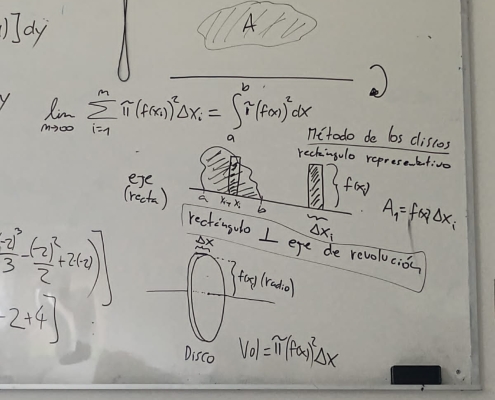 )]dy
A
y
lim m→∞ ∑ i=1 m π(f(xi))²Δxi = ∫ a b π(f(x))²dx
Método de los discos
rectángulo representativo
eje
(recta)
a xi-1 xi b
f(xi)
Δxi
A1=f(xi)Δxi
rectángulo ⊥ eje de revolución
-2)³/3 - (-2)²/2 + 2(-2))]
-2+4]
Δx
f(x) (radio)
Disco
Vol=π(f(x))²Δx